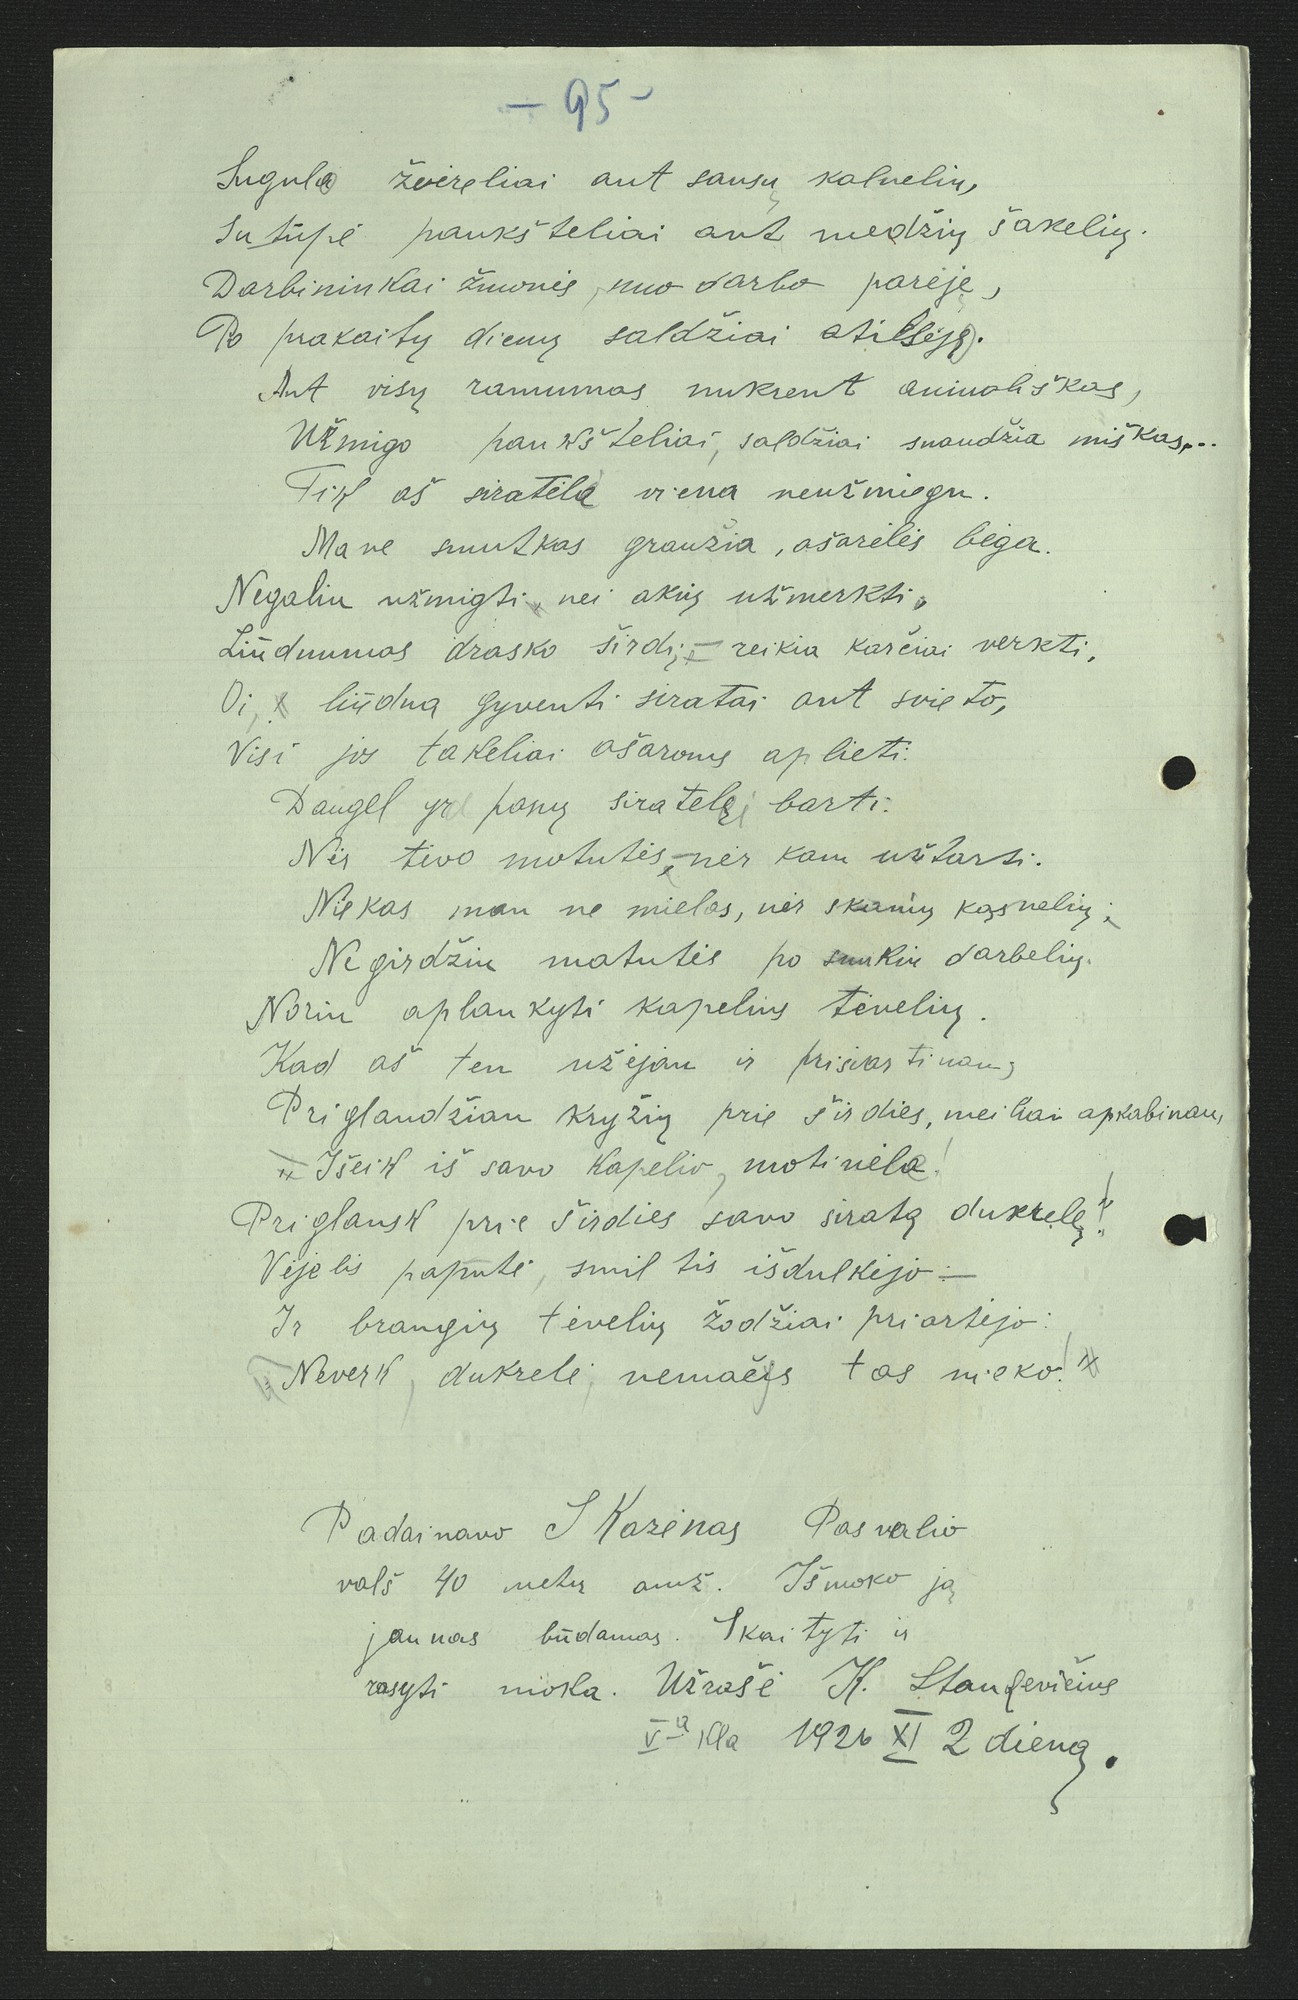 - 95 -
Sugula žvireliai ant sansų kalnelių,
Sutūpė paukšteliai ant medžių šakelių.
Darbininkai žmonės, nuo darbo parėję,
Po prakaitų dienų saldžiai atilsėję.
Ant visų ramumas nukrent animališkas,
Užmigo paukšteliai, saldžiai snaudžia miškas...
Tik aš siratėlė viena neužmiegu.
Mane smutkas graužia, ašarėlės bėga.
Negaliu užmigti, nei akių užmerkti,
Liūdnumas drasko širdį, – reikia karčiai verkti,
Oi, liūdna gyventi siratai ant svieto,
Visi jos takeliai ašaroms aplieti.
Daugel yra ponų siratelę barti.
Nėr tėvo motutės, – nėr kam užtarti.
Niekas man ne mielas, nėr skanių kąsnelių;
Negirdžiu matutės po sunkių darbelių.
Noriu aplankyti kapelius tėvelių.
Kad aš ten užėjau ir prisivartinau,
Priglaudžiau kryžių prie širdies, meiliai apkabinau,
„Išeik iš savo kapelio, motinėle!
Priglausk prie širdies savo siratą dukrelę!"
Vėjelis papūtė, smiltis išdulkėjo –
Ir brangių tėvelių žodžiai priartėjo:
„Neverk, dukrele, nemačys tas nieko!"
Padainavo S Karėnas Pasvalio
valš 40 metų amž. Išmoko ją
jaunas būdamas. Skaityti ir
rasyti moka. Užrašė K. Stankevičius
V-a kla 1926 XI 2 dieną.